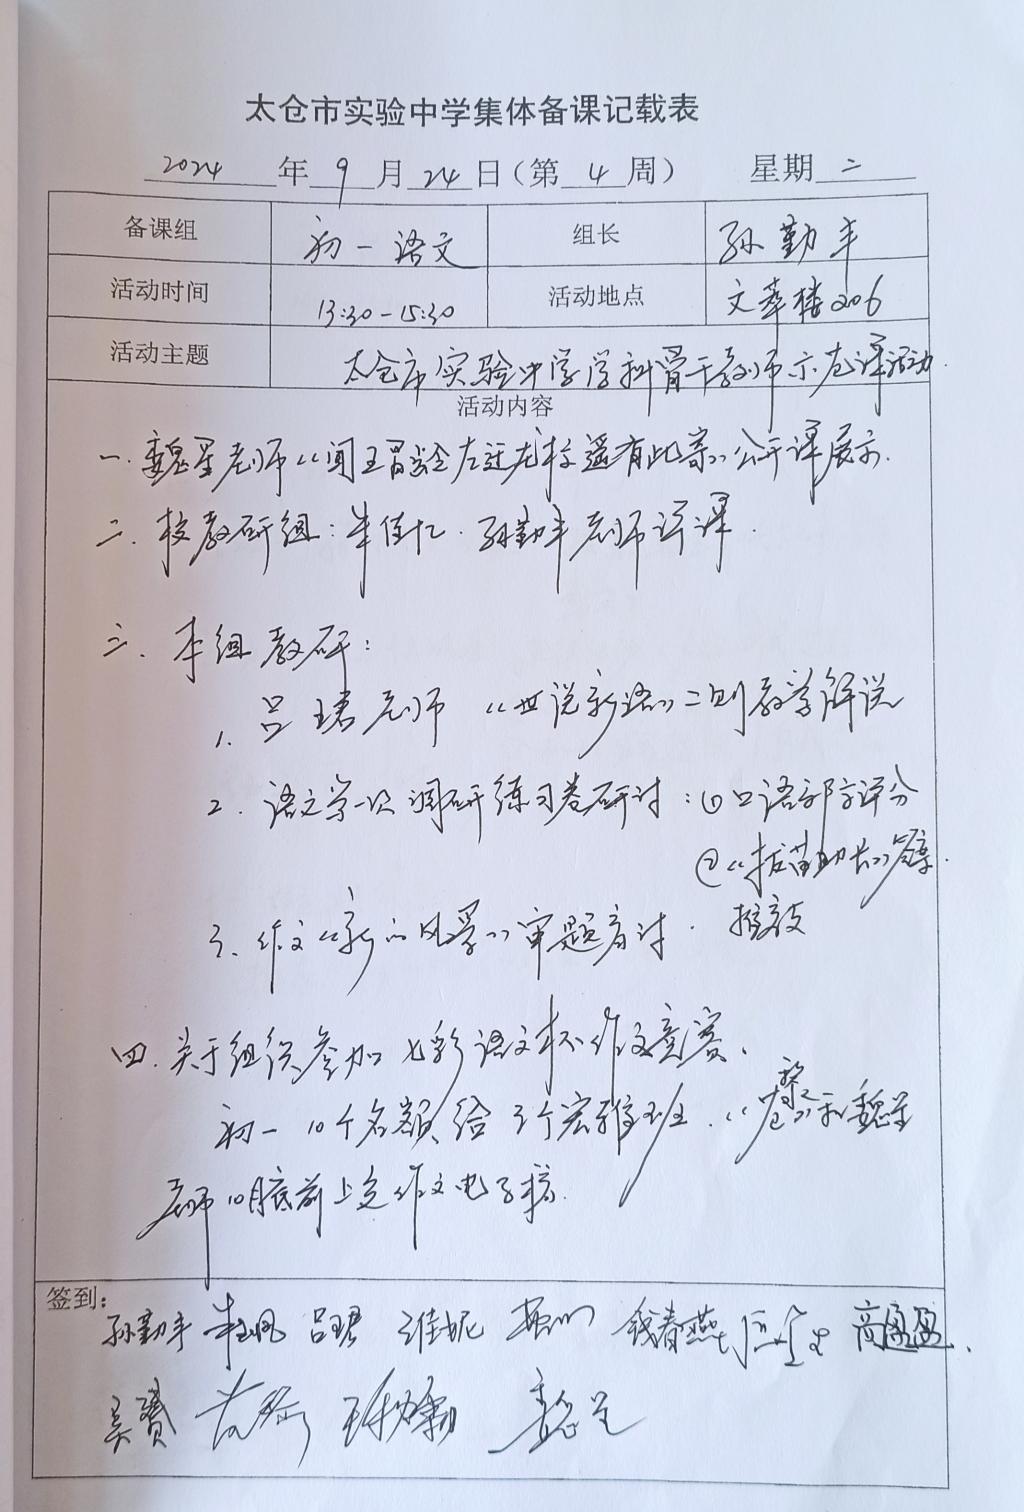 太仓市实验中学集体备课记载表
2024年9月24日（第4周） 星期二
备课组 初一语文 组长 孙勤丰
活动时间 13:30-15:30 活动地点 文萃楼206
活动主题 太仓市实验中学学科骨干教师示范课活动.
活动内容
一.魏星老师《闻王昌龄左迁龙标遥有此寄》公开课展示.
二.校教研组:牟佳忆.孙勤丰老师评课.
三.本组教研:
1.吕珺老师《世说新语》二则教学解说
2.语文学一次调研练习卷研讨:①口语部分评分
②《拔苗助长》答案.
推敲
3、作文《新的风景》审题商讨.
四.关于组织参加七彩语文杯作文竞赛.
初一10个名额给3个宏雅班.
老师10月底前上交作文电子稿.
签到:
孙勤丰 吕珺 钱春燕 高盈盈
吴赟 魏星